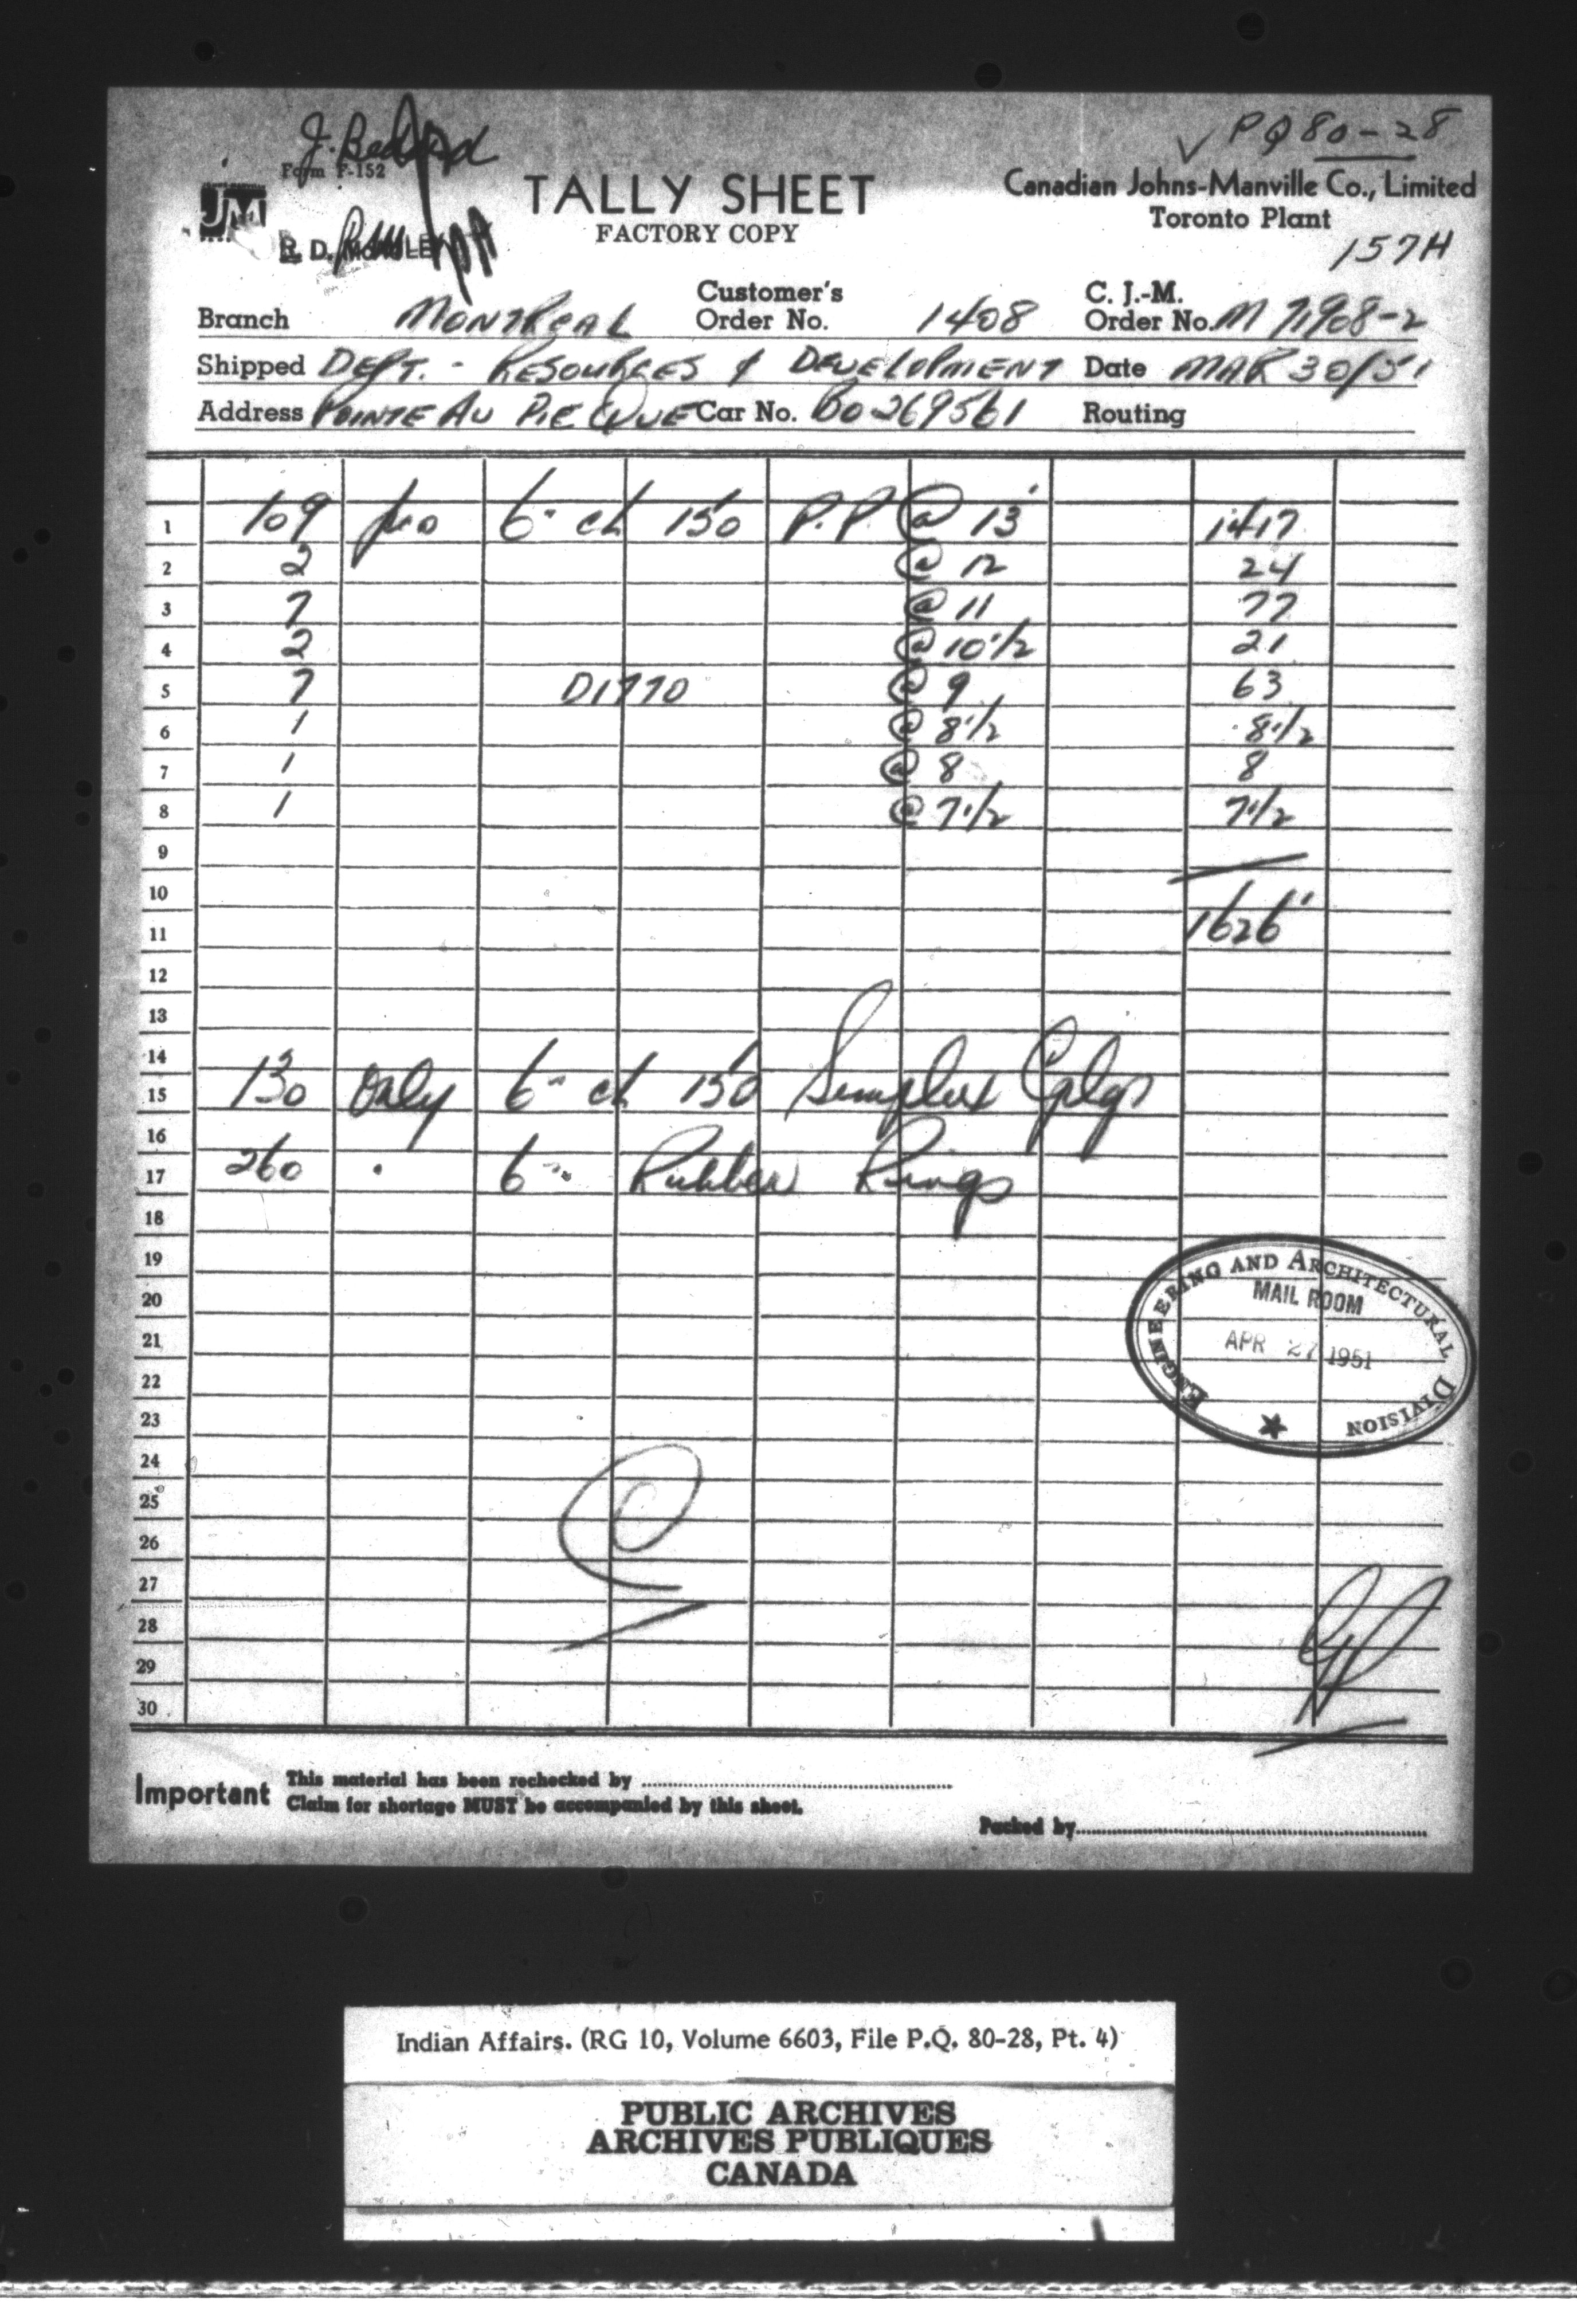 J. Bedford
✓ PQ 80-28
Form F-152
JM
TALLY SHEET
Canadian Johns-Manville Co., Limited
FACTORY COPY
Toronto Plant
R. D.
157H
Branch MONTREAL Customer's Order No. 1408 C. J.-M. Order No. M 71908-2
Shipped DEPT. - RESOURCES & DEVELOPMENT Date MAR 30/51
Address POINTE AU PIC QUE Car No. BO 269561 Routing
1 109 pcs 6" cl 150 P.P. @ 13' 1417
2 2 @ 12 24
3 7 @ 11 77
4 2 @ 10 1/2 21
5 7 D1770 @ 9 63
6 1 @ 8 1/2 8 1/2
7 1 @ 8 8
8 1 @ 7 1/2 7 1/2
9
10
11 1626'
12
13
14
15 130 Only 6" cl 150 Simplex Cplgs
16
17 260 " 6" Rubber Rings
18
19
20
21
22
23
24
25
26
27
28
29
30
ENGINEERING AND ARCHITECTURAL DIVISION
MAIL ROOM
APR 27 1951
Important This material has been rechecked by
Claim for shortage MUST be accompanied by this sheet.
Packed by
Indian Affairs. (RG 10, Volume 6603, File P.Q. 80-28, Pt. 4)
PUBLIC ARCHIVES
ARCHIVES PUBLIQUES
CANADA